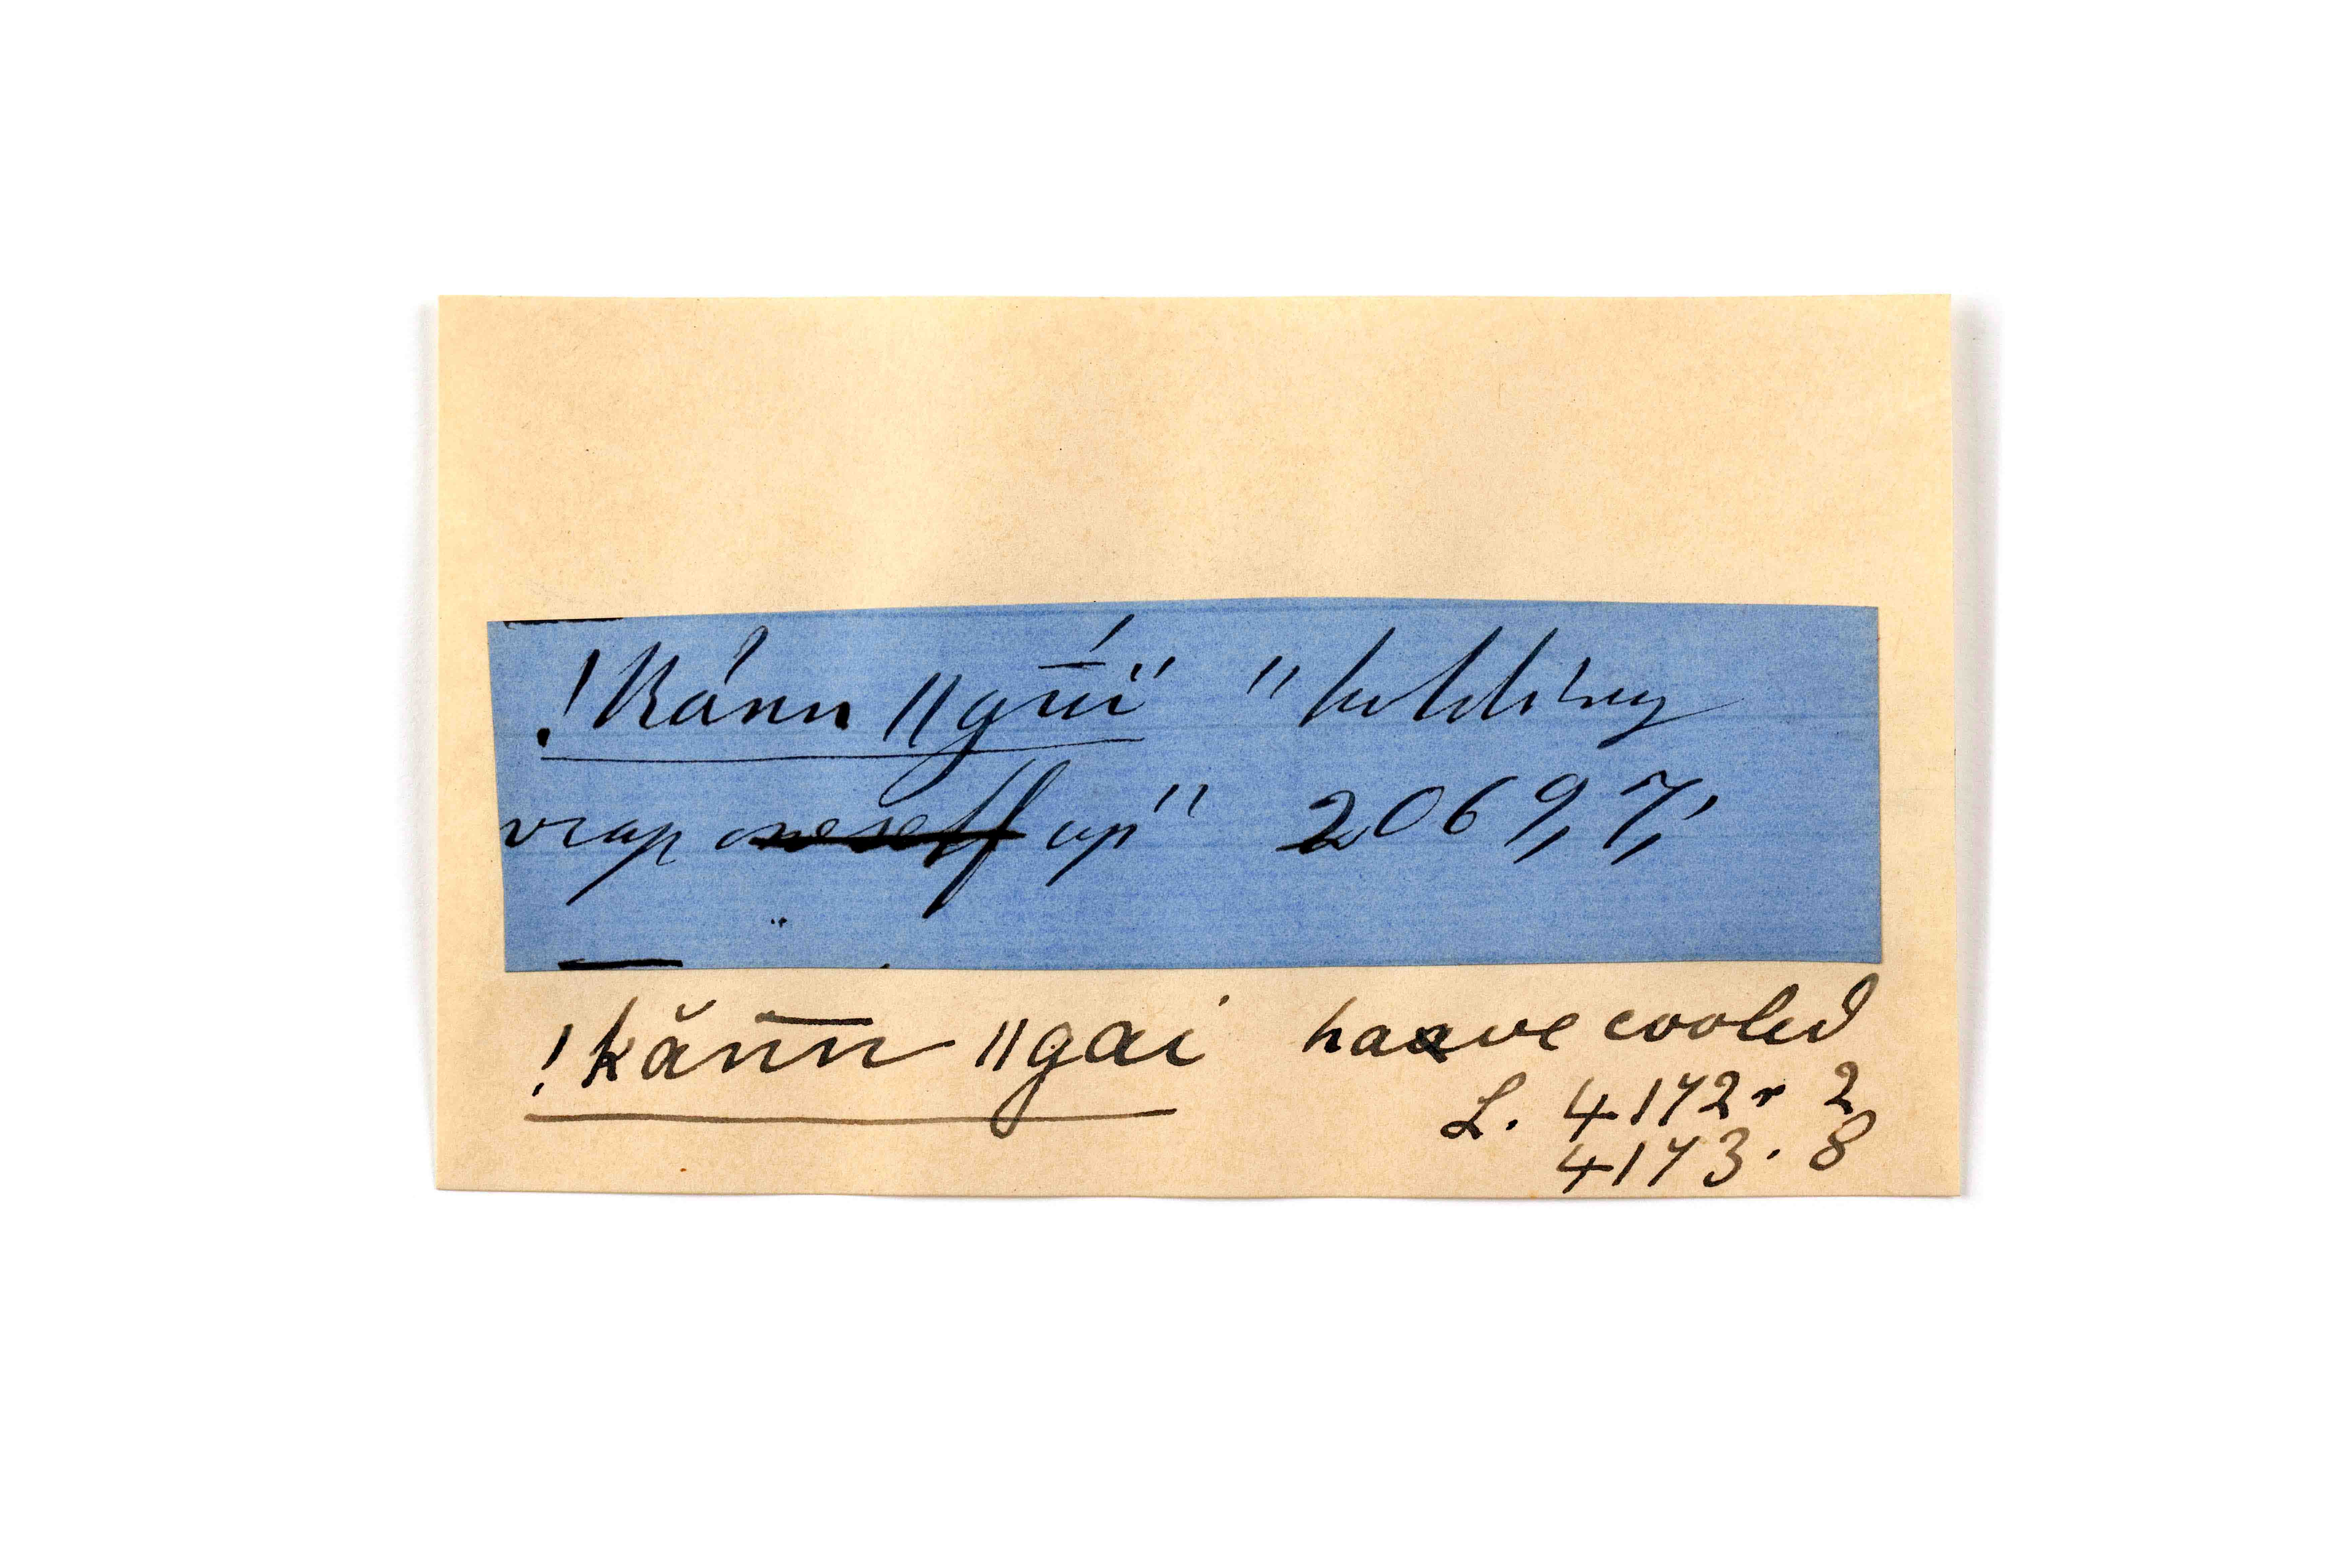 !kánn ǁgu̅i" "holding
wrap oneself up" 2069,7,'
!kăn̅n ǁgai haave cooled
L. 4172r 2
4173. 8